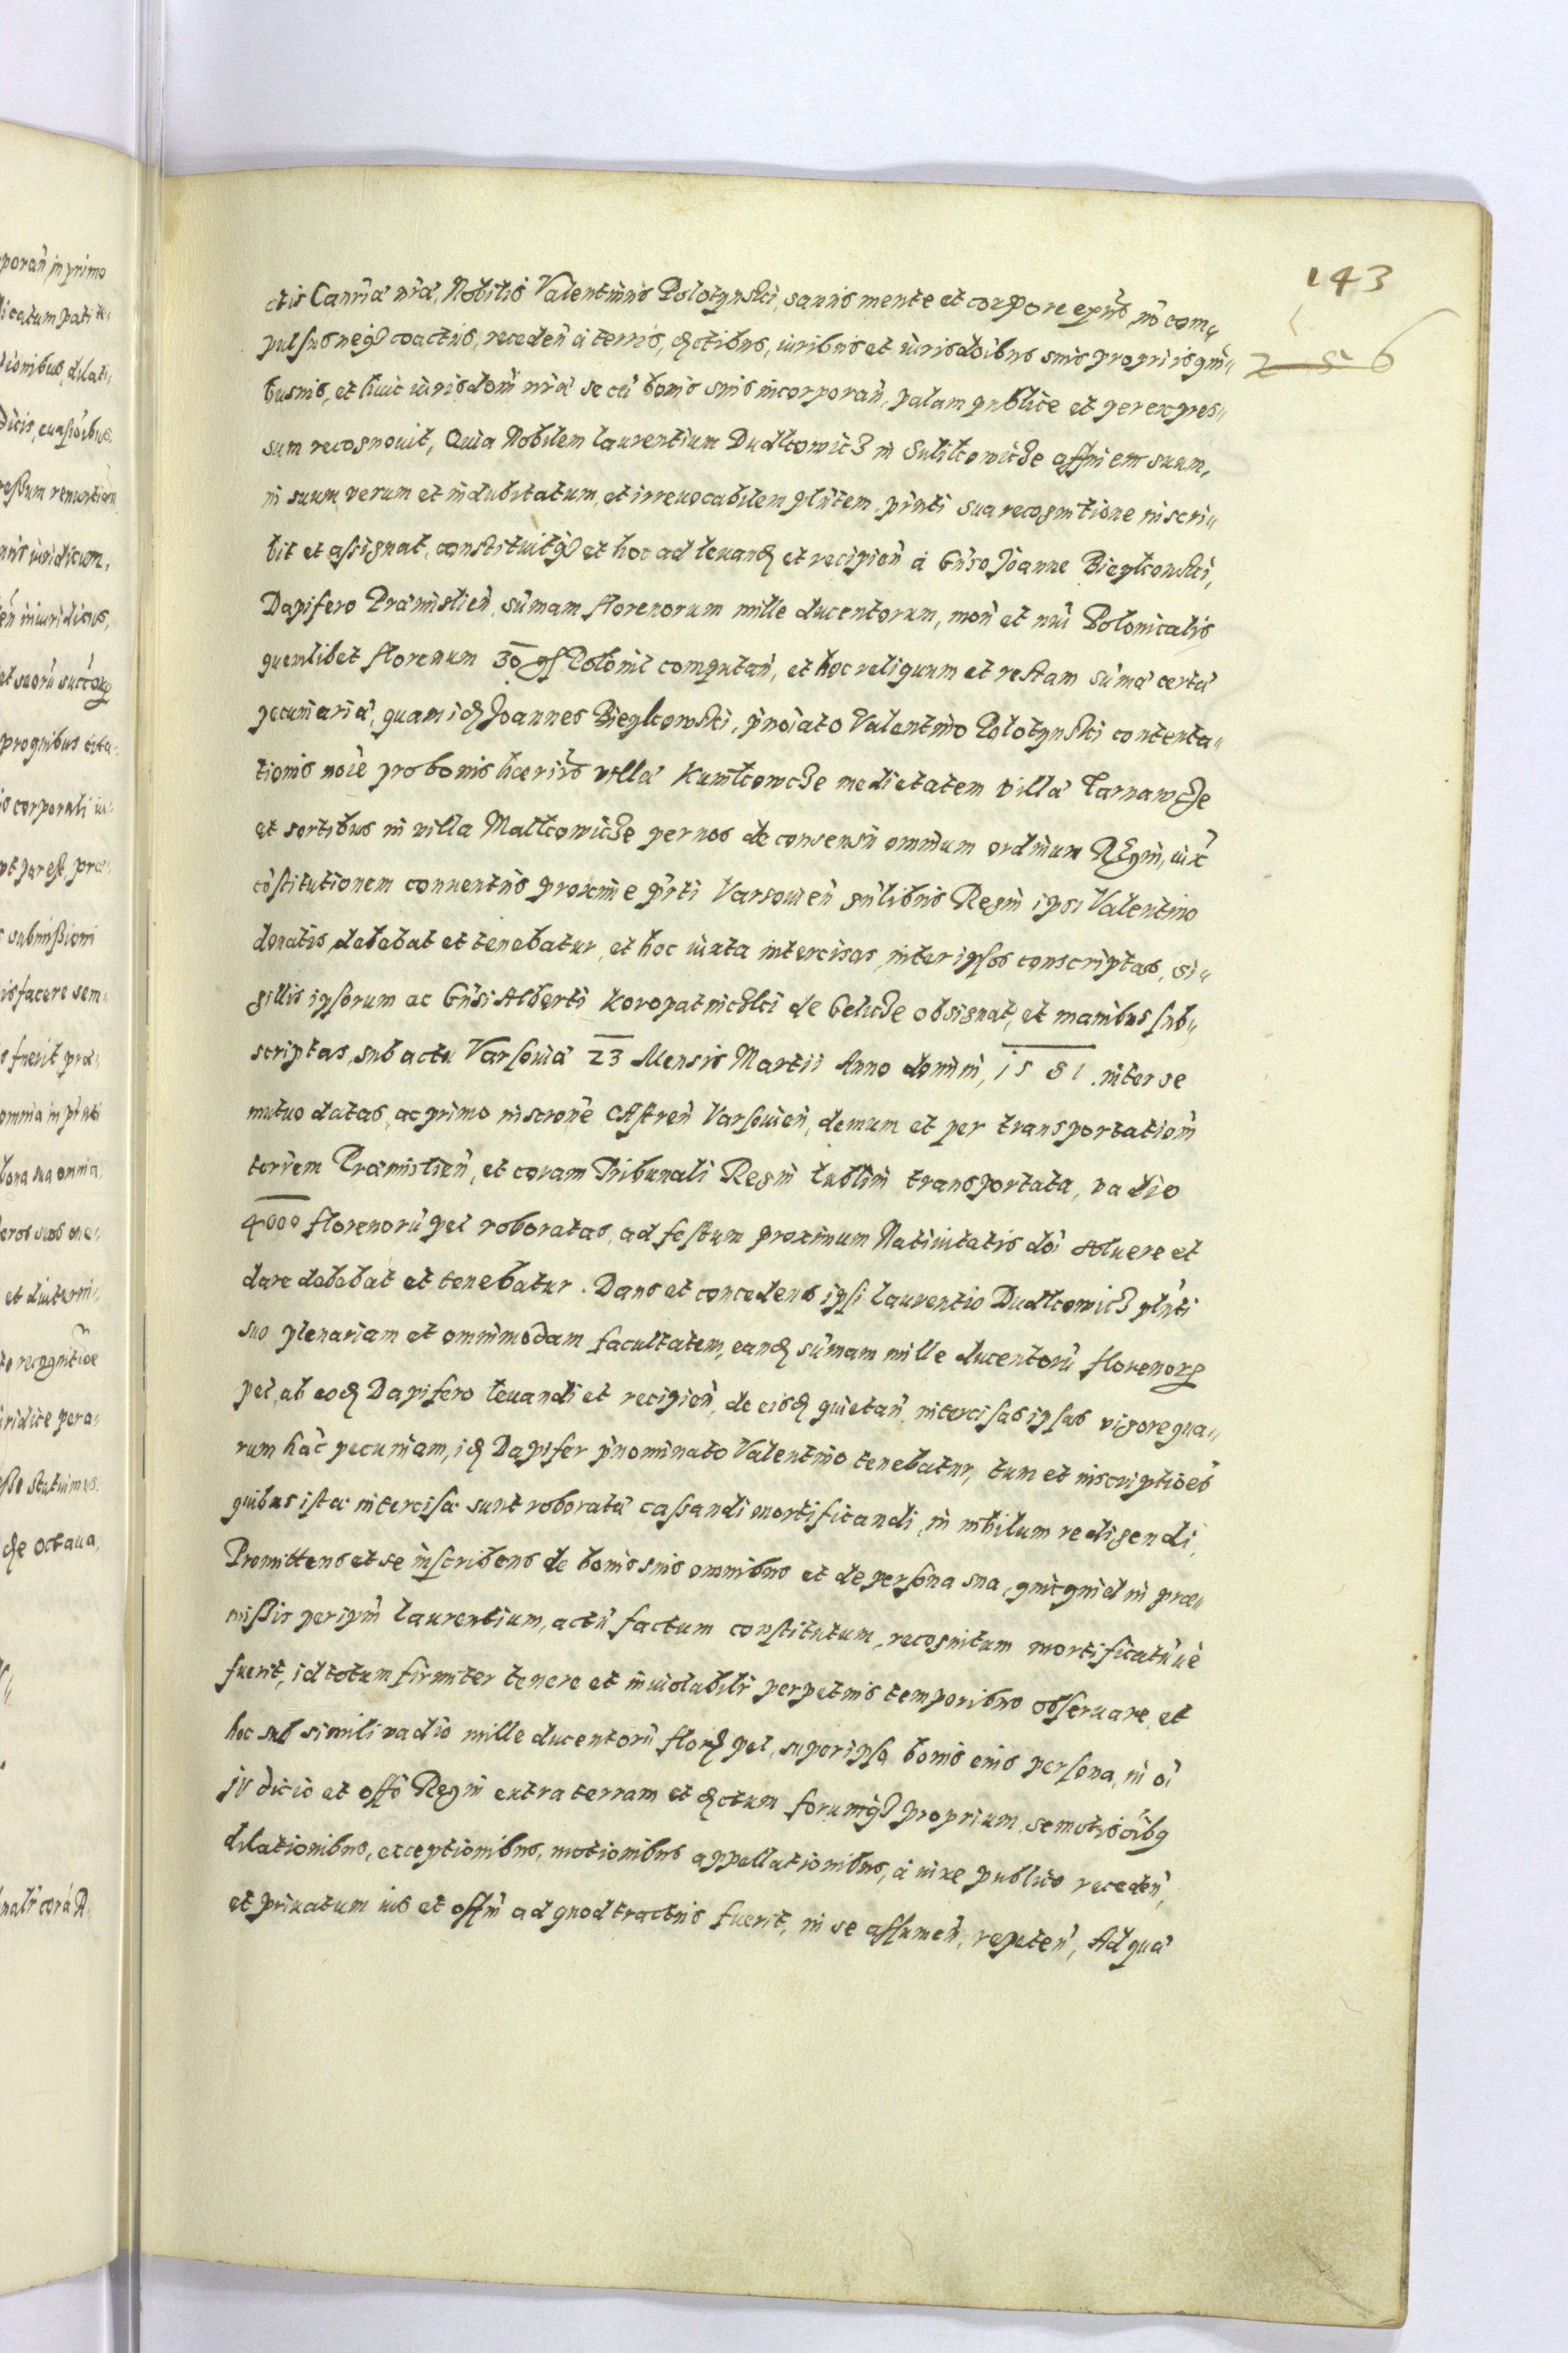 143
256
ctis Canriã nrã, Nobilis Valentinus Polotynski, sanus mente et corpore exñs, nõ com„
pulsus neqꝫ coactus, receden̄ a terris, d̄ctibus, iuribus et iurisdoibus suis proprijs qui„
busuis, et huic iurisdoni nrã se cũ bonis suis incorporan̄, palam publice et per expres„
sum recognouit, Quia Nobilem Laurentium Dudkowicz in Sulikowicze affinem suum,
in suum verum et indubitatum, et irreuocabilem plntem, pr̄nti sua recognitione inscri„
bit et assignat, constituitqꝫ et hoc ad leuand et recipien̄ a Gnso Joanne Bieykowski,
Dapifero Præmislien̄, sũmam florenorum mille ducentorum, mon̄ et nũi Polonicalis
quemlibet florenum 30 gs Polonicl computan̄, et hoc reliquum et restam sũmã certã
pecuniariã, quam id Joannes Bieykowski, p̄noiato Valentino Polotynski contenta„
tionis noiẽ pro bonis hæriis villã Kunikowcze medietatem villã Tarnawcze
et sortibus in villa Malkowicze per nos de consensu omnium ordinum Regni, iux̄
cõstitutionem conuentus proxime pr̄ti Varsouien̄ gñlibus Regni ipsi Valentino
donatis, debebat et tenebatur, et hoc iuxta intercisas, inter ipsos conscriptas, si„
gillis ipsorum ac Gnsi Alberti Koropatniczki de Gelicze obsignat, et manibus sub„
scriptas, sub actu Varsouiã 23 Mensis Martii Anno domini, 1581. inter se
mutuo datas, ac primo inscrone Castren̄ Varsouien̄, demum et per transportationi
terrem Præmislien̄, et coram Tribunali Regni Lublin̄ transportata, vadio
4000 florenorũ pel roboratas, ad festum proximum Natiuitatis doi soluere et
dare debebat et tenebatur. Dans et concedens ipsi Laurentio Dudkowicz plnti
suo plenariam et omnimodam facultatem, eand sũmam mille ducentorũ florenorꝝ
pel, ab eod Dapifero leuandi et recipien̄, de eisd quietan̄, intercisas ipsas vigore qua„
rum hãc pecuniam, id Dapifer p̄nominato Valentino tenebatur, tum et inscriptioẽs
quibus istæ intercisæ sunt roboratã cassandi mortificandi, in nihilum redigendi,
Promittens et se inscribens de bonis suis omnibus et de persona sua, quicquid in præ„
missis per ipm̄ Laurentium, actũ factum constitutum, recognitum mortificatũue
fuerit, id totum firmiter tenere et inuiolabilr perpetuis temporibus obseruare, et
hoc sub simili vadio mille ducentorũ flord pel, super ipso bonis eius persona, in oi
judicio et offo Regni extra terram et d̄ctum forumqꝫ proprium, semotis oibꝯ
dilationibus, exceptionibus, motionibus appellationibus, a iure publico receden̄,
et priuatum ius et offm̄ ad quod tractus fuerit, in se assumen̄, repeten̄, Ad quã